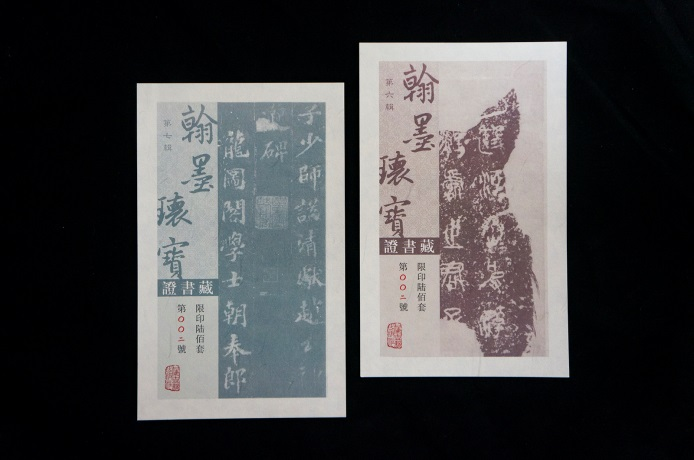 子少師諡清獻趙公神
道碑
龍圖閣學士朝奉郎
翰墨瓌寶
第七輯
藏書證
限印陸佰套
第〇〇二號
翰墨瓌寶
第六輯
藏書證
限印陸佰套
第〇〇二號